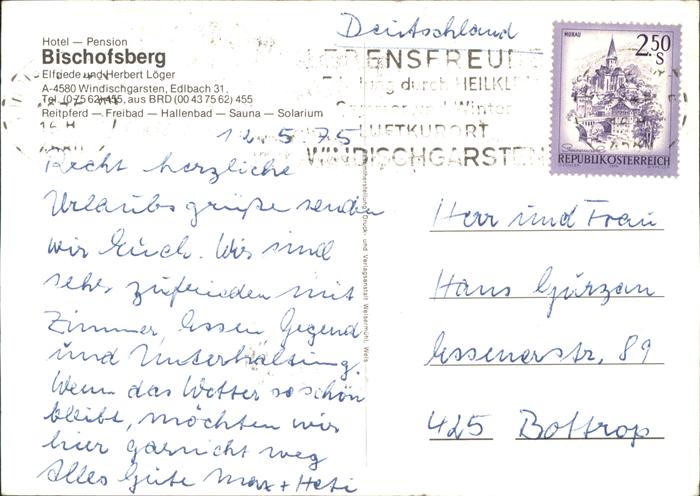 Deutschland
Hotel — Pension
Bischofsberg
Elfriede und Herbert Löger
A-4580 Windischgarsten, Edlbach 31
Tel. (07562) 455, aus BRD (00 43 75 62) 455
Reitpferd — Freibad — Hallenbad — Sauna — Solarium
LEBENSFREUDE
durch HEILKLI
Sommer und Winter
LUFTKURORT
WINDISCHGARSTEN
MURAU
2.50
S
REPUBLIK ÖSTERREICH
12.5.75
Recht herzliche
Urlaubsgrüße senden
wir Euch. Wir sind
sehr zufrieden mit
Zimmer, Essen Gegend
und Unterhaltung.
Wenn das Wetter so schön
bleibt, möchten wir
hier garnicht weg
Alles Gute Max + Heti
Herr und Frau
Hans Gürzan
Essenerstr. 89
425 Bottrop